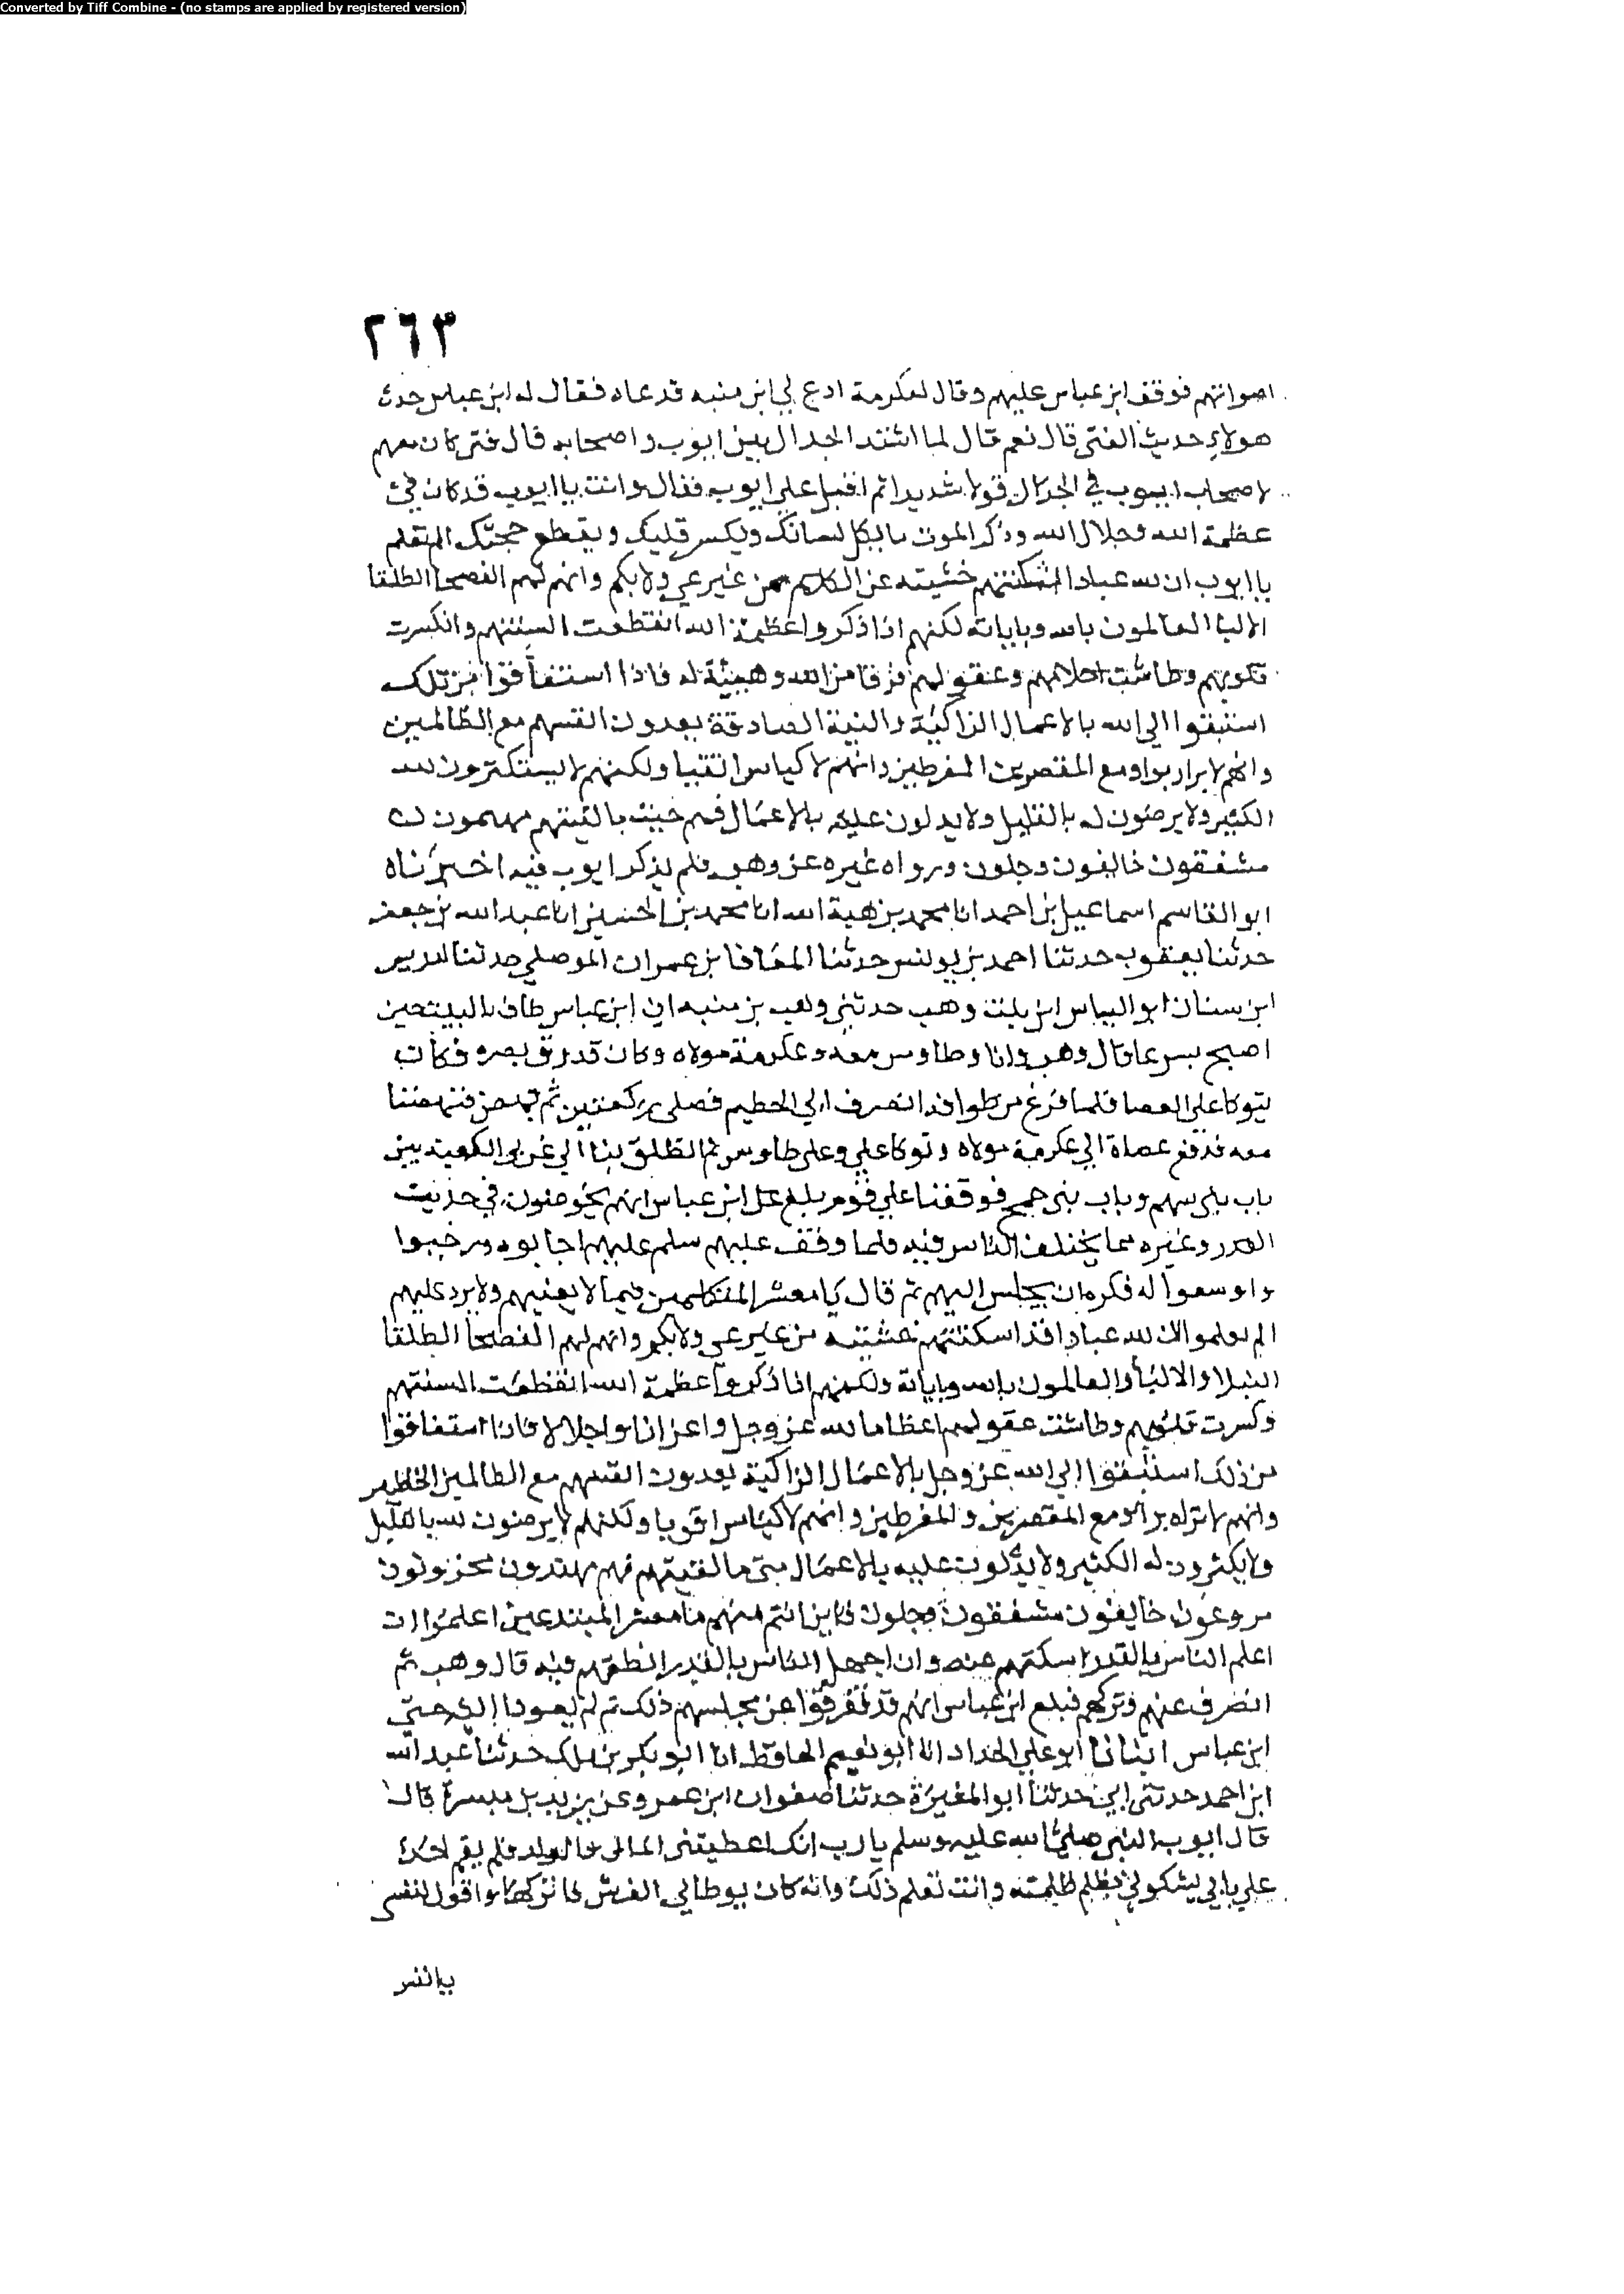 Converted by Tiff Combine - (no stamps are applied by registered version)
٢٦٣
اصواتهم فوقف ابن عباس عليهم وقال لعكرمة ادع لي ابن منبه قدعاه فقال له ابن عباس حدث
هولاء حديث الفتى قال نعم قال لما اشتد الجدال بين ايوب واصحابه قال فتى كان معهم
لاصحاب ايوب في الجدال قولا شديدا ثم اقبل على ايوب فقال وانت يا ايوب قد كان في
عظمة الله وجلال الله وذكر الموت ما يكل لسانك ويكسر قلبك ويقطع حجتك الم تعلم
يا ايوب ان لله عبادا اسكتتهم خشيته عن الكلام من غير عي ولا بكم وانهم لهم الفصحا الطلقا
الالبا العالمون بالله وباياته لكنهم اذا ذكروا عظمة الله انقطعت السنتهم وانكسرت
قلوبهم وطاشت احلامهم وعقولهم فرقا من الله وهيبة له فاذا استفاقوا من تلك
استبقوا الى الله بالاعمال الزاكية والنية الصادقة يعدون انفسهم مع الظالمين
وانهم لابرار برا ومع المقصرين المفرطين وانهم لاكياس اتقيا ولكنهم لا يستكثرون لله
الكثير ولا يرضون له بالقليل ولا يدلون عليه بالاعمال فهم حيث ما لقيتهم مهيمون
مشفقون خايفون وجلون ورواه غيره عن وهب فلم يذكر ايوب فيه اخبرناه
ابو القاسم اسماعيل بن احمد انا محمد بن هبة الله انا محمد بن الحسين انا عبد الله بن جعفر
حدثنا يعقوب حدثنا احمد بن يونس حدثنا المعافا بن عمران الموصلي حدثنا ادريس
ابن سنان ابو الياس ابن بنت وهب حدثني وهب بن منبه ان ابن عباس طاف بالبيت حين
اصبح سبعا قال وهب وانا وطاوس معه وعكرمة مولاه وكان قد رق بصره فكان
يتوكا على العصا فلما فرغ من طوافه انصرف الى الحطيم فصلى ركعتين ثم نهض فنهضنا
معه فدفع عصاه الى عكرمة مولاه وتوكا علي وعلى طاوس ثم انطلق بنا الى غربي الكعبة بين
باب بني سهم وباب بني جمح فوقفنا على قوم بلغ ابن عباس انهم يخوضون في حديث
القدر وغيره مما يختلف الناس فيه فلما وقف عليهم سلم عليهم اجابوه ورحبوا
واوسعوا له فكره ان يجلس اليهم ثم قال يا معشر المتكلمين فيما لا يعنيهم ولا يرد عليهم
الم تعلموا ان لله عبادا قد اسكتتهم خشيته من غير عي ولا بكم وانهم لهم الفصحا الطلقا
النبلا والالبا والعالمون بالله وباياته ولكنهم اذا ذكروا عظمة الله انقطعت السنتهم
وكسرت قلوبهم وطاشت عقولهم اعظاما لله عز وجل واعزازا واجلالا فاذا استفاقوا
من ذلك استبقوا الى الله عز وجل بالاعمال الزاكية يعدون انفسهم مع الظالمين الخاطين
وانهم لانزاه برا ومع المقصرين والمفرطين وانهم لاكياس اقويا ولكنهم لا يرضون لله بالقليل
ولا يكثرون له الكثير ولا يدلون عليه بالاعمال متى ما لقيتهم فهم مهتدون محزونون
مروعون خايفون مشفقون وجلون فاين انتم منهم يا معشر المبتدعين اعلموا ان
اعلم الناس بالقدر اسكتهم عنه وان اجهل الناس بالقدر انطقهم فيه قال وهب ثم
انصرف عنهم وتركهم فبلغ ابن عباس انهم قد تفرقوا عن مجلسهم ذلك ثم لم يعودوا اليه حتى
ابن عباس انبانا ابو علي الحداد انا ابو نعيم الحافظ انا ابو بكر بن ملك حدثنا عبد الله
ابن احمد حدثني ابي حدثنا ابو المغيرة حدثنا صفوان ابن عمرو عن يزيد بن ميسرة قال
قال ايوب النبي صلى الله عليه وسلم يا رب انك اعطيتني المال والولد فلم يقم احد
على بابي يشكوني بظلم ظلمته وانت تعلم ذلك وانه كان يوطا لي الفرش فاتركها واقول لنفسي
يا نفس